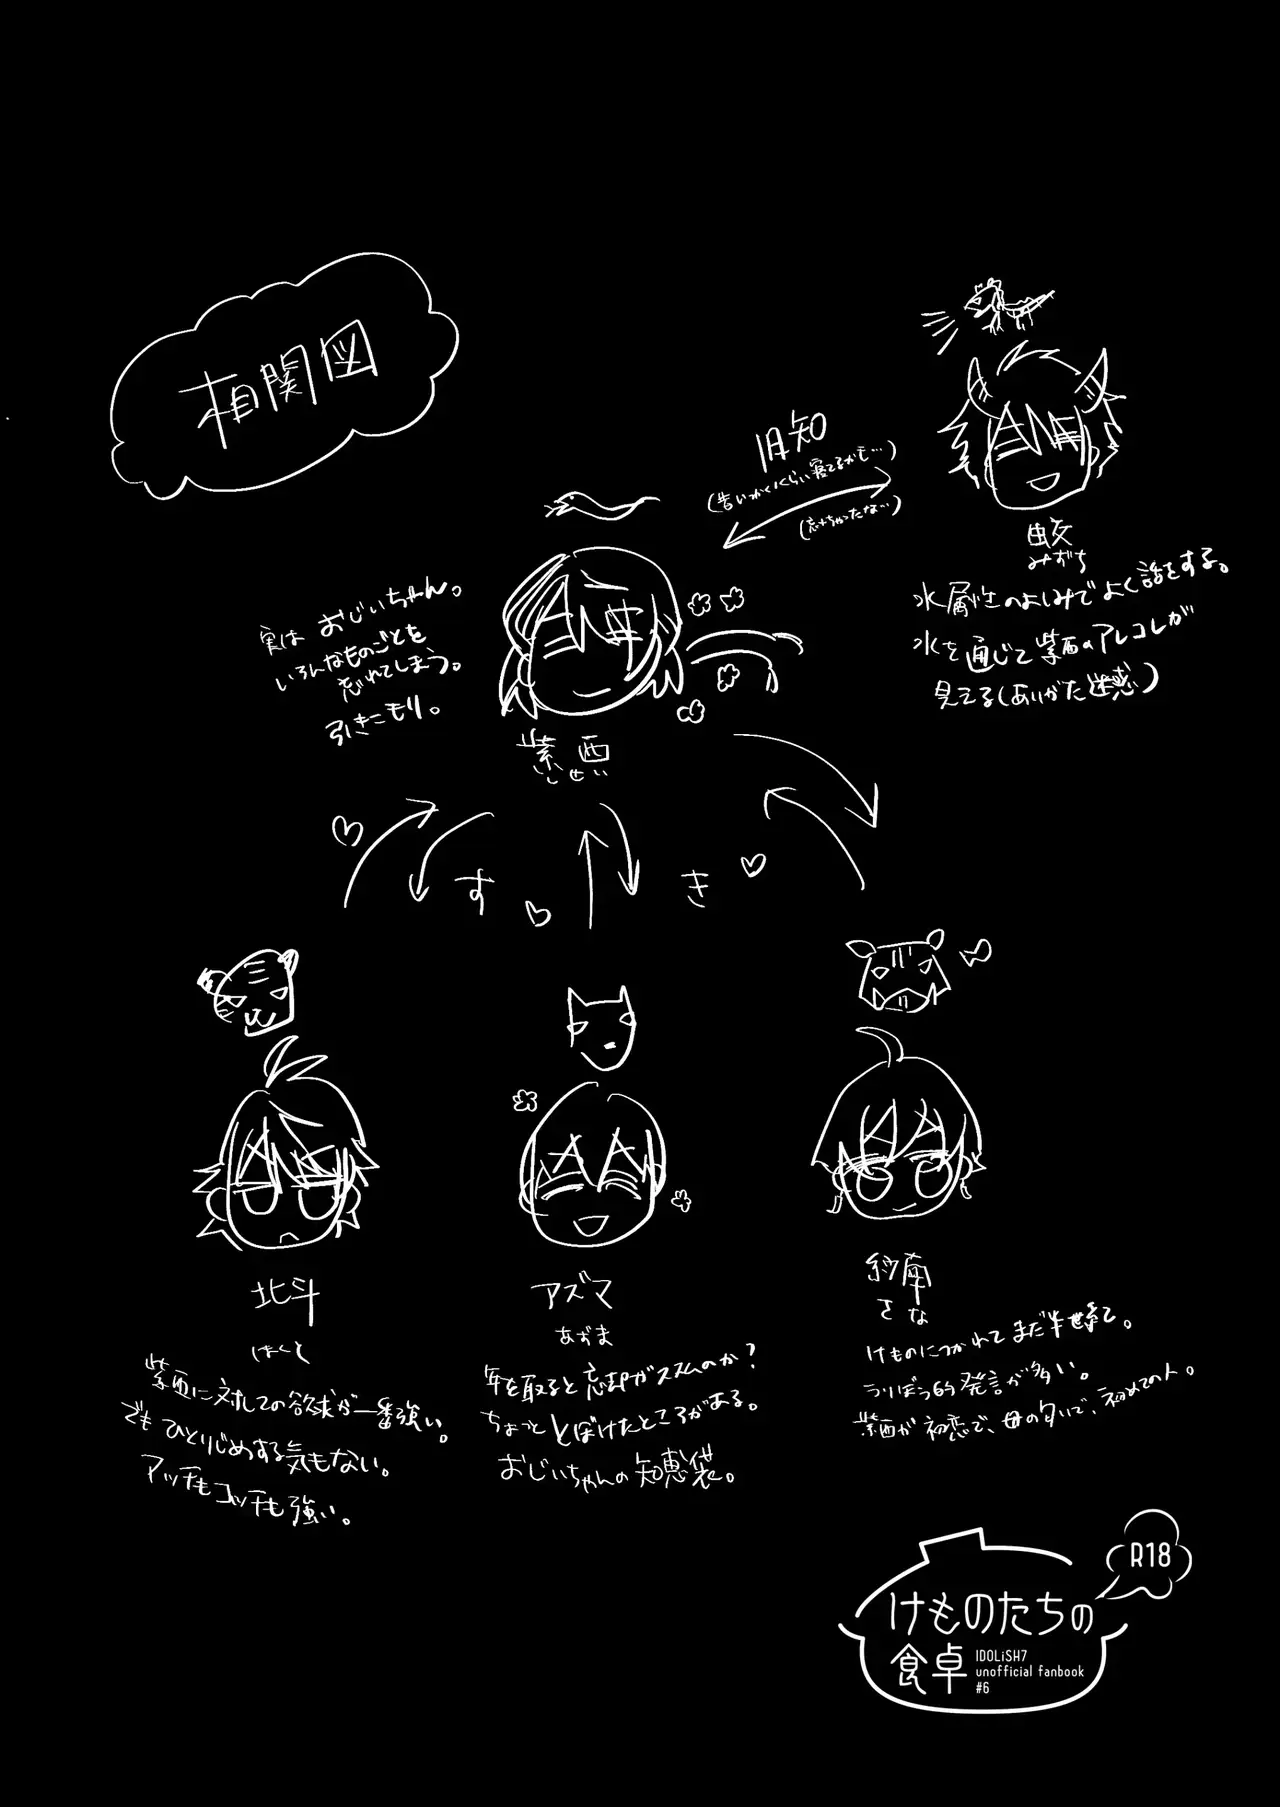 相関図
旧知
(忘れちゃったな…)
蛟
みずち
水属性のよしみでよく話をする。
水を通じて紫西のアレコレが
見てる(ありがた迷惑)
実はおじいちゃん。
いろんなものごとを
忘れてしまう。
引きこもり。
紫西
しせい
す
き
北斗
ほくと
紫西に対しての欲求が一番強い。
でもひとりじめする気もない。
アッチもコッチも強い。
アズマ
あずま
年を取ると忘却がススムのか?
ちょっととぼけたところがある。
おじいちゃんの知恵袋。
紗南
さな
けものにつかれてまだ半世紀。
うりぼう的発言が多い。
紫西が初恋で、母の匂いで、初めての人。
R18
けものたちの
食卓
IDOLiSH7
unofficial fanbook
#6